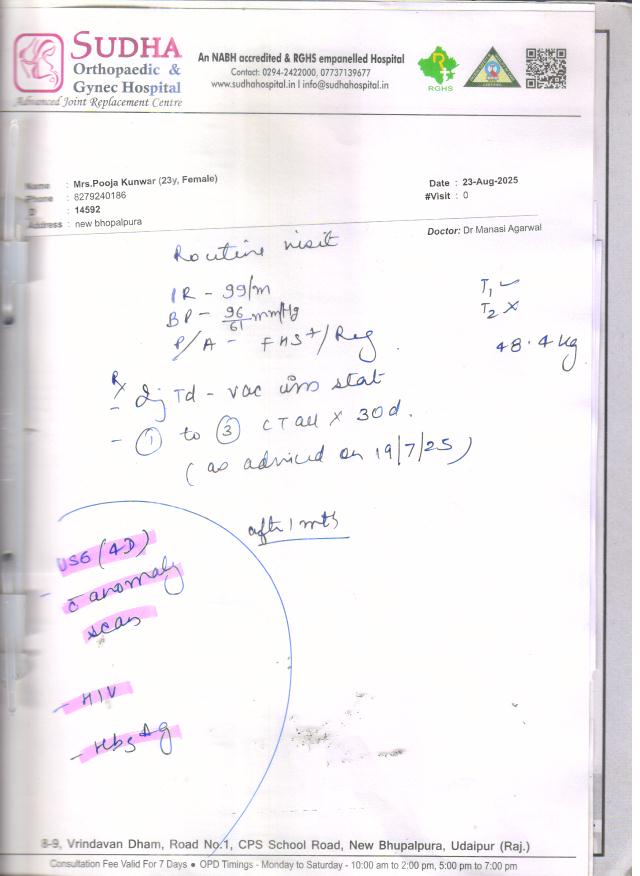 SUDHA
Orthopaedic &
Gynec Hospital
Advanced Joint Replacement Centre
An NABH accredited & RGHS empanelled Hospital
Contact: 0294-2422000, 07737139677
www.sudhahospital.in | info@sudhahospital.in
RGHS
Name : Mrs.Pooja Kunwar (23y, Female)
Phone : 8279240186
: 14592
Address : new bhopalpura
Date : 23-Aug-2025
#Visit : 0
Doctor: Dr Manasi Agarwal
Routine visit
PR - 99/m
BP - 96/61 mm/Hg
P/A - FHS+/Reg
T1 ✓
T2 X
48.4 kg
Rx
- Inj Td - vac im stat
- ① to ③ CT all X 30d.
(as adviced on 19/7/25)
after 1 mth
USG (4D)
- c̄ anomaly
scan
- HIV
- HbsAg
8-9, Vrindavan Dham, Road No.1, CPS School Road, New Bhupalpura, Udaipur (Raj.)
Consultation Fee Valid For 7 Days ● OPD Timings - Monday to Saturday - 10:00 am to 2:00 pm, 5:00 pm to 7:00 pm